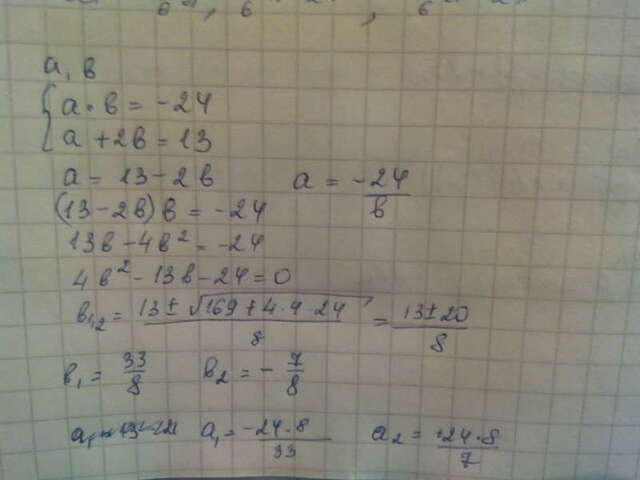 a, в
{ a · в = -24
a + 2в = 13
a = 13 - 2в    a = -24/в
(13 - 2в) в = -24
13в - 4в² = -24
4в² - 13в - 24 = 0
в₁,₂ = (13 ± √(169 + 4·4·24))/8 = (13 ± 20)/8
в₁ = 33/8    в₂ = -7/8
a₁ = (-24·8)/33    a₂ = (+24·8)/7